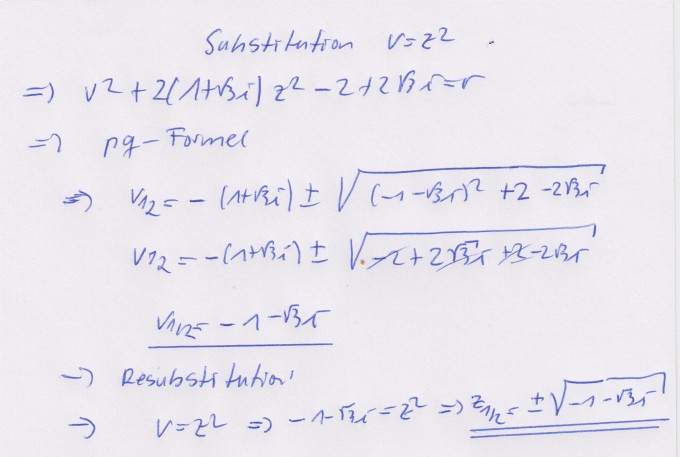 Substitution v=z²
=> v² + 2(1+√3i) z² - 2 + 2√3i = r
=> pq-Formel
=> v₁₂ = - (1+√3i) ± √((-1-√3i)² + 2 - 2√3i)
v₁₂ = -(1+√3i) ± √(-2 + 2√3i + 2 - 2√3i)
v₁/₂ = -1-√3i
-> Resubstitution:
-> v=z² => -1-√3i = z² => z₁/₂ = ±√(-1-√3i)